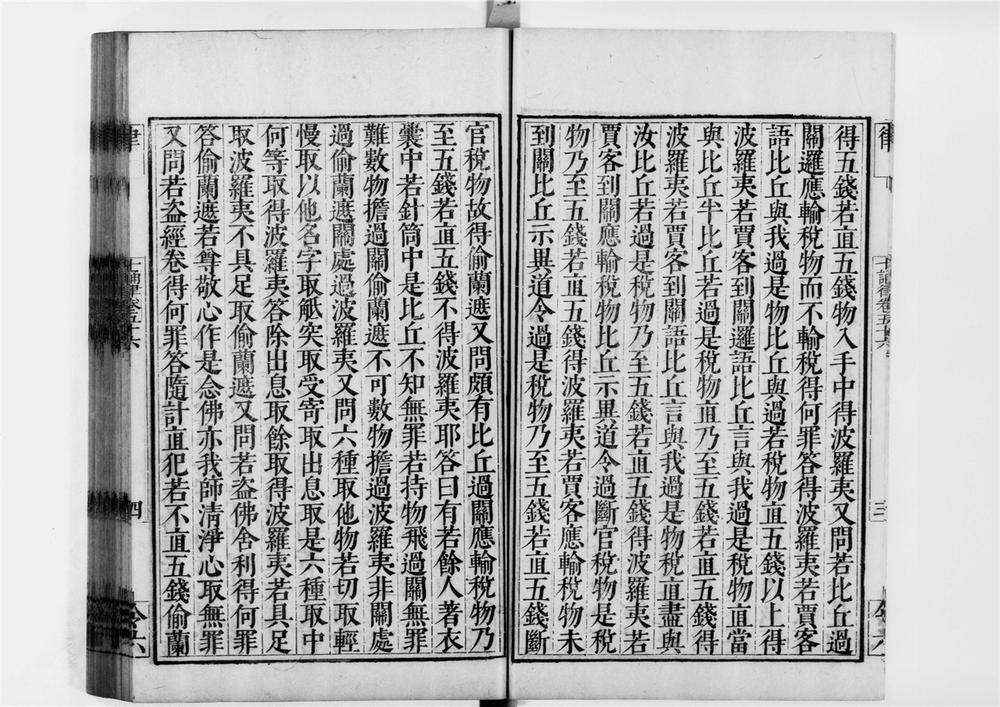 得五錢若直五錢物入手中得波羅夷又問若比丘過
關邏應輸稅物而不輸稅得何罪答得波羅夷若賈客
語比丘與我過是物比丘與過若稅物直五錢以上得
波羅夷若賈客到關邏語比丘言與我過是稅物直當
與比丘半比丘若過是稅物直乃至五錢若直五錢得
波羅夷若賈客到關語比丘言與我過是物稅直盡與
汝比丘若過是稅物乃至五錢若直五錢得波羅夷若
賈客到關應輸稅物比丘示異道令過斷官稅物是稅
物乃至五錢若直五錢得波羅夷若賈客應輸稅物未
到關比丘示異道令過是稅物乃至五錢若直五錢斷
律
十誦律卷五十六
三
官稅物故得偷蘭遮又問頗有比丘過關應輸稅物乃
至五錢若直五錢不得波羅夷耶答曰有若餘人著衣
囊中若針筒中是比丘不知無罪若持物飛過關無罪
難數物擔過關偷蘭遮不可數物擔過波羅夷非關處
過偷蘭遮關處過波羅夷又問六種取他物若切取輕
慢取以他名字取觝突取受寄取出息取是六種取中
何等取得波羅夷答除出息取餘取得波羅夷若具足
取波羅夷不具足取偷蘭遮又問若盜佛舍利得何罪
答偷蘭遮若尊敬心作是念佛亦我師清淨心取無罪
又問若盜經卷得何罪答隨計直犯若不直五錢偷蘭
律
十誦律卷五十六
四